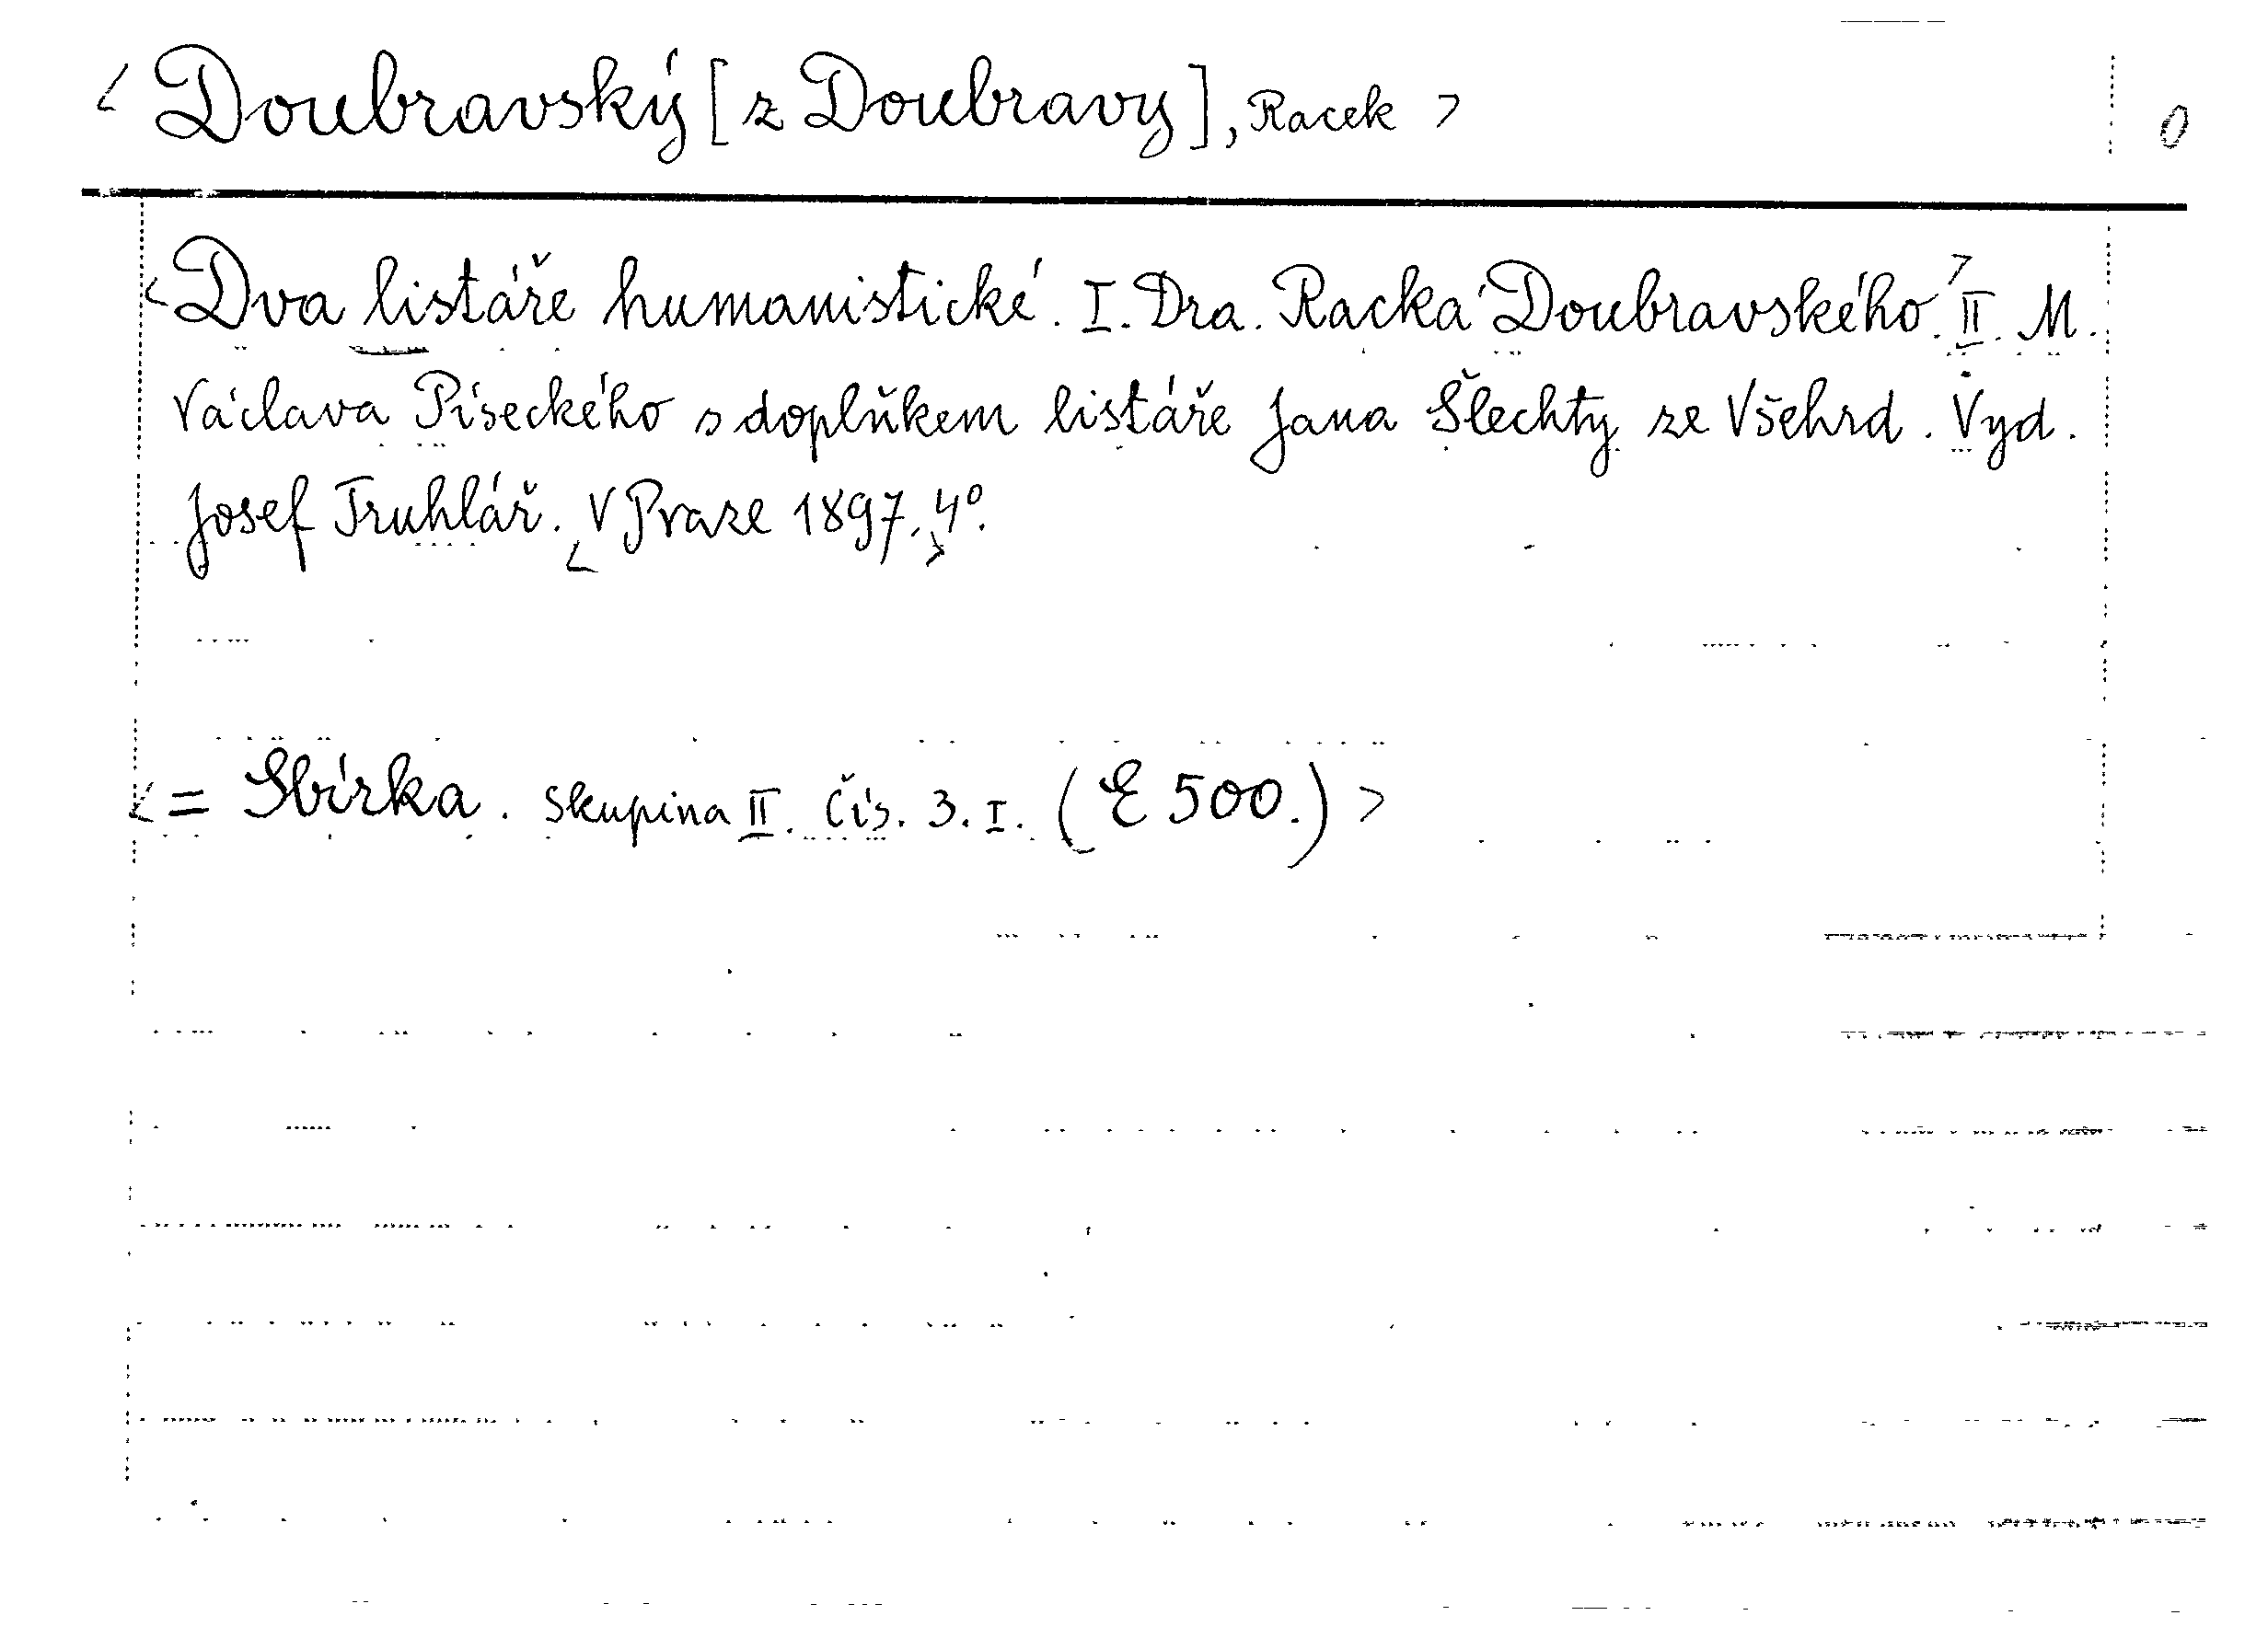 < Doubravský [z Doubravy], Racek > 0
< Dva listáře humanistické. I. Dra. Racka Doubravského.> II. M.
Václava Píseckého s doplňkem listáře Jana Šlechty ze Všehrd. Vyd.
Josef Truhlář. < V Praze 1897. > 4º.
< = Sbírka. Skupina II. Čís. 3. I. (E 500.) >